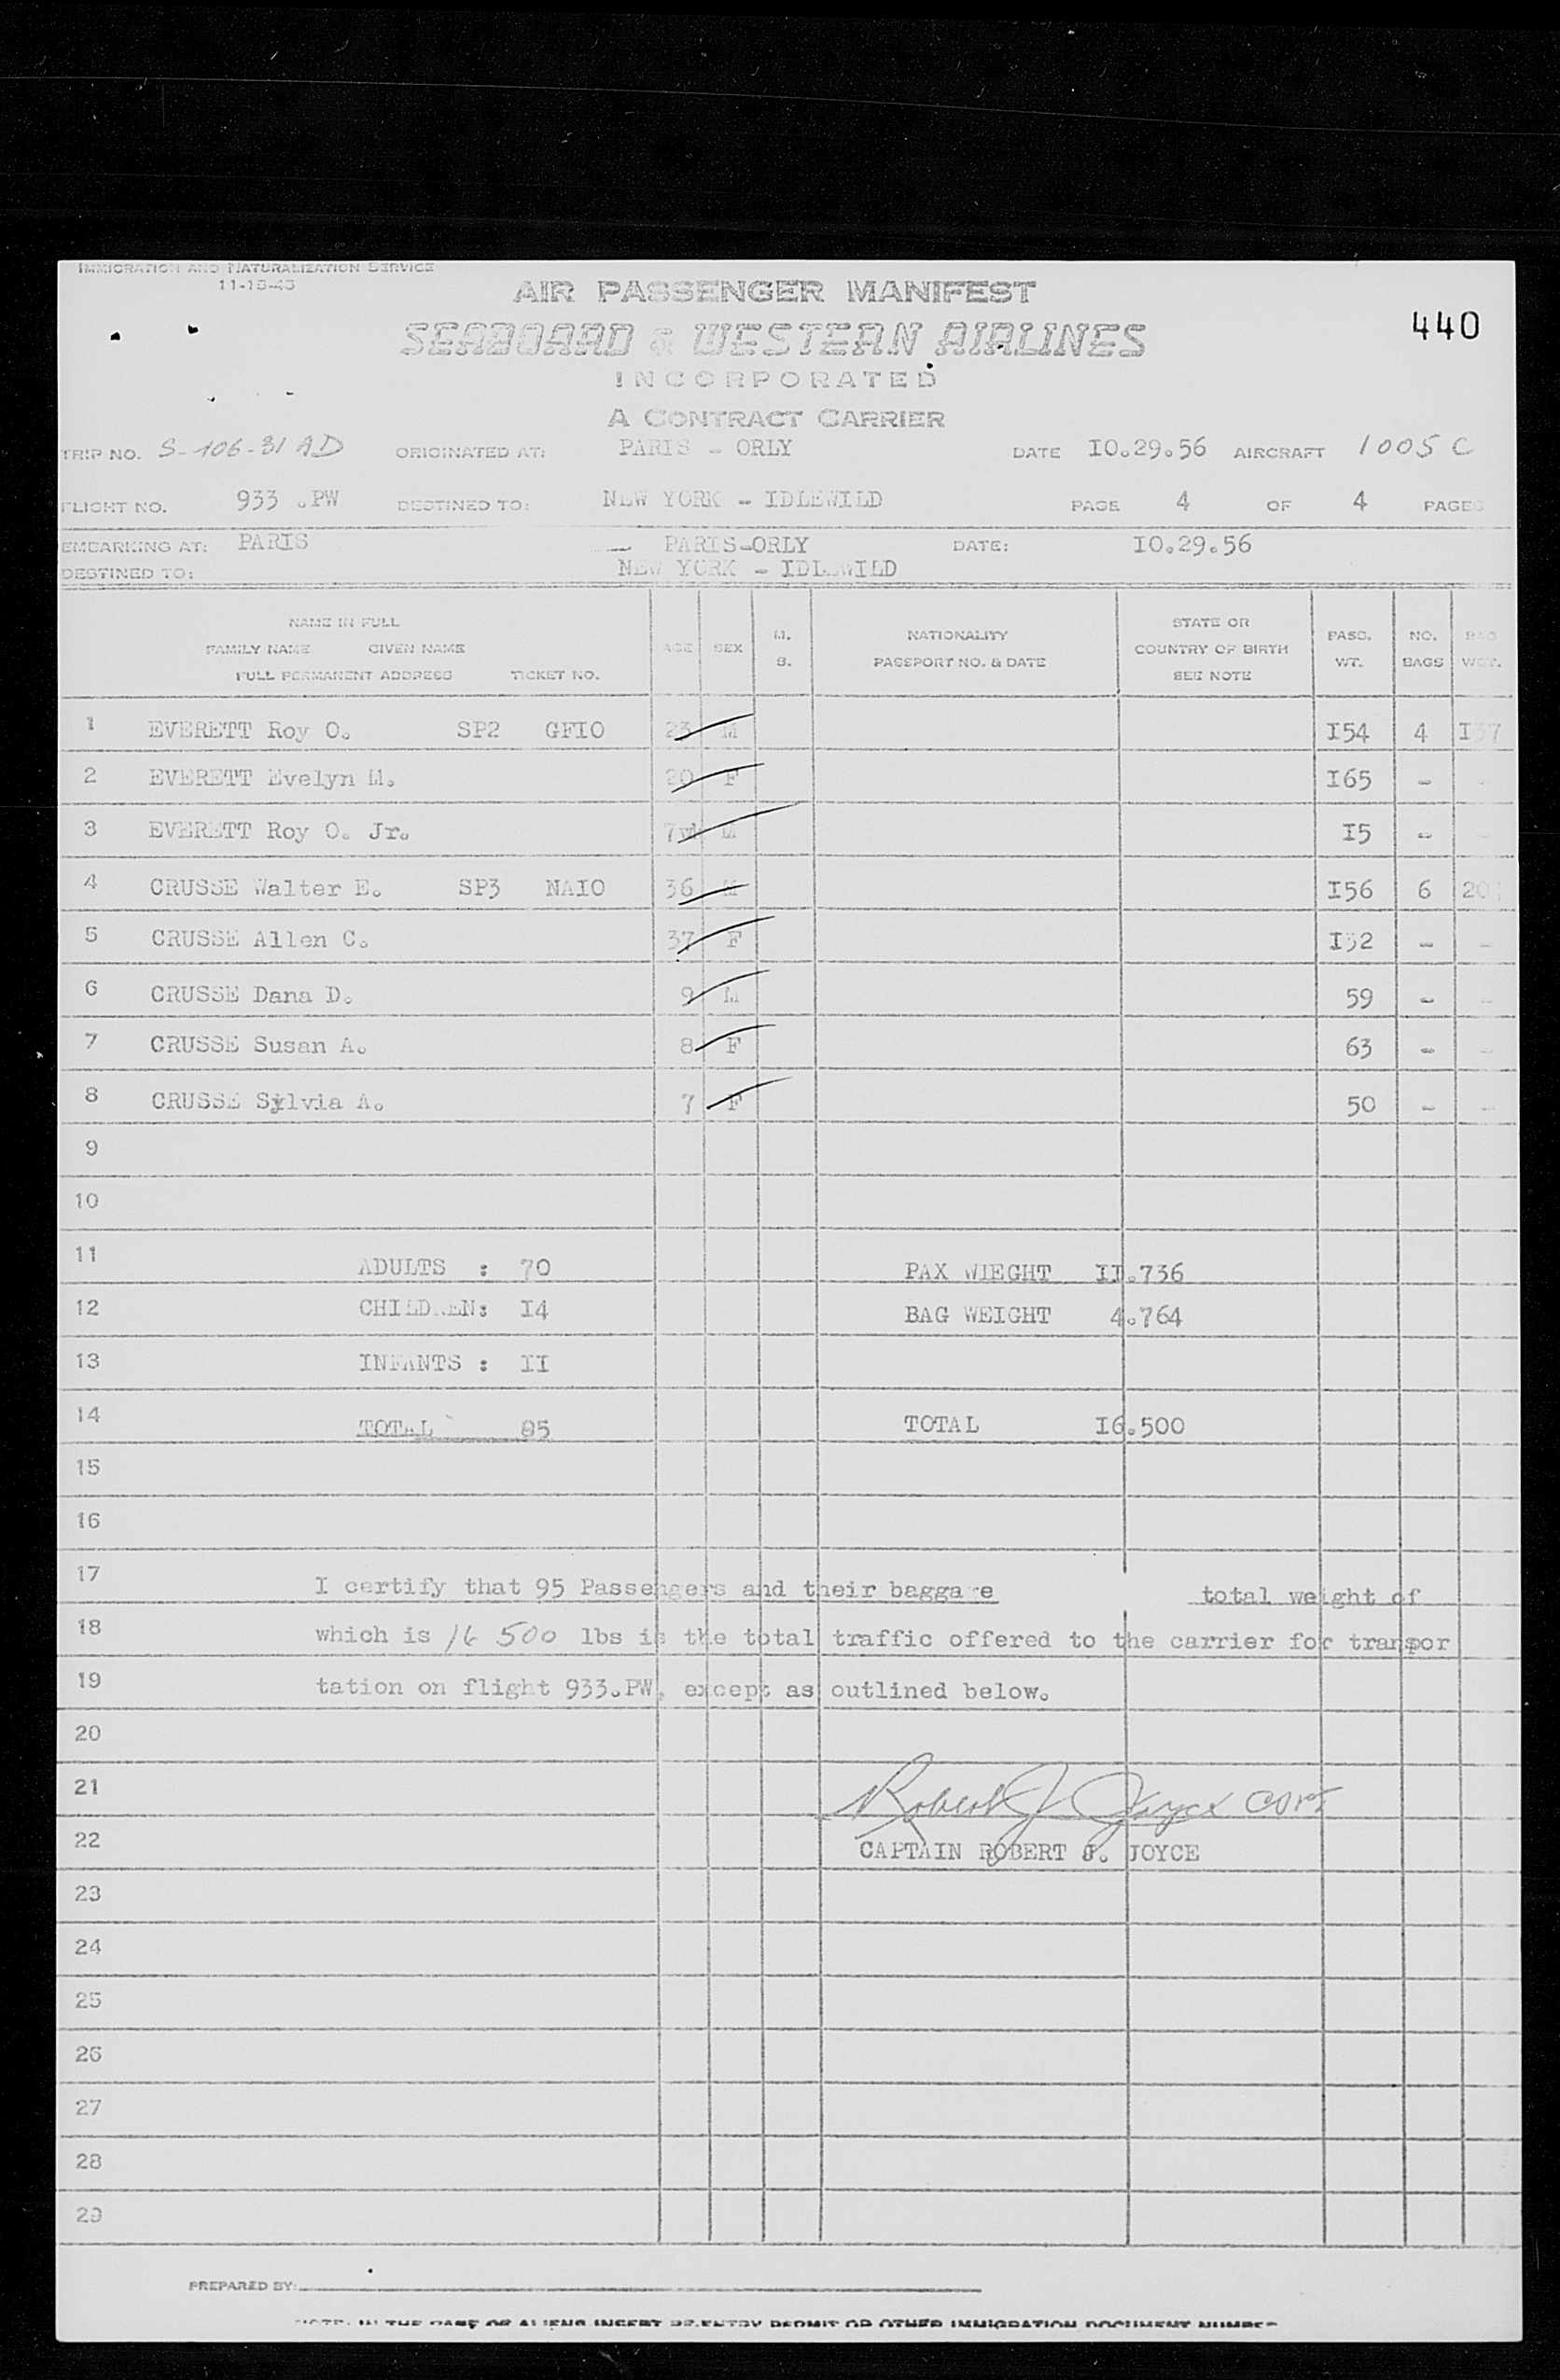 IMMIGRATION AND NATURALIZATION SERVICE
11-15-45
AIR PASSENGER MANIFEST
440
SEABOARD & WESTERN AIRLINES
INCORPORATED
A CONTRACT CARRIER
TRIP NO. S-106-31 AD ORIGINATED AT: PARIS - ORLY DATE IO.29.56 AIRCRAFT 1005 C
FLIGHT NO. 933 .PW DESTINED TO: NEW YORK - IDLEWILD PAGE 4 OF 4 PAGES
EMBARKING AT: PARIS - PARIS-ORLY DATE: IO.29.56
DESTINED TO: NEW YORK - IDLEWILD
NAME IN FULL
FAMILY NAME GIVEN NAME
FULL PERMANENT ADDRESS TICKET NO.
AGE SEX
M.
S.
NATIONALITY
PASSPORT NO. & DATE
STATE OR
COUNTRY OF BIRTH
SEE NOTE
PASS.
WT.
NO.
BAGS
BAG
WGT.
1 EVERETT Roy O. SP2 GFIO 23 M I54 4 I37
2 EVERETT Evelyn M. 20 F I65 - -
3 EVERETT Roy O. Jr. 7 M I5 - -
4 CRUSSE Walter E. SP3 NAIO 36 M I56 6
5 CRUSSE Allen C. 37 F I32 - -
6 CRUSSE Dana D. 9 M 59 - -
7 CRUSSE Susan A. 8 F 63 - -
8 CRUSSE Sylvia A. 7 F 50 - -
9
10
11 ADULTS : 70 PAX WIEGHT II.736
12 CHILDREN: I4 BAG WEIGHT 4.764
13 INFANTS : II
14 TOTAL 95 TOTAL I6.500
15
16
17 I certify that 95 Passengers and their baggage total weight of
18 which is 16 500 lbs is the total traffic offered to the carrier for transpor
19 tation on flight 933.PW, except as outlined below.
20
21 Robert J Joyce
22 CAPTAIN ROBERT J. JOYCE
23
24
25
26
27
28
29
PREPARED BY:
NOTE: IN THE CASE OF ALIENS INSERT RE-ENTRY PERMIT OR OTHER IMMIGRATION DOCUMENT NUMBER